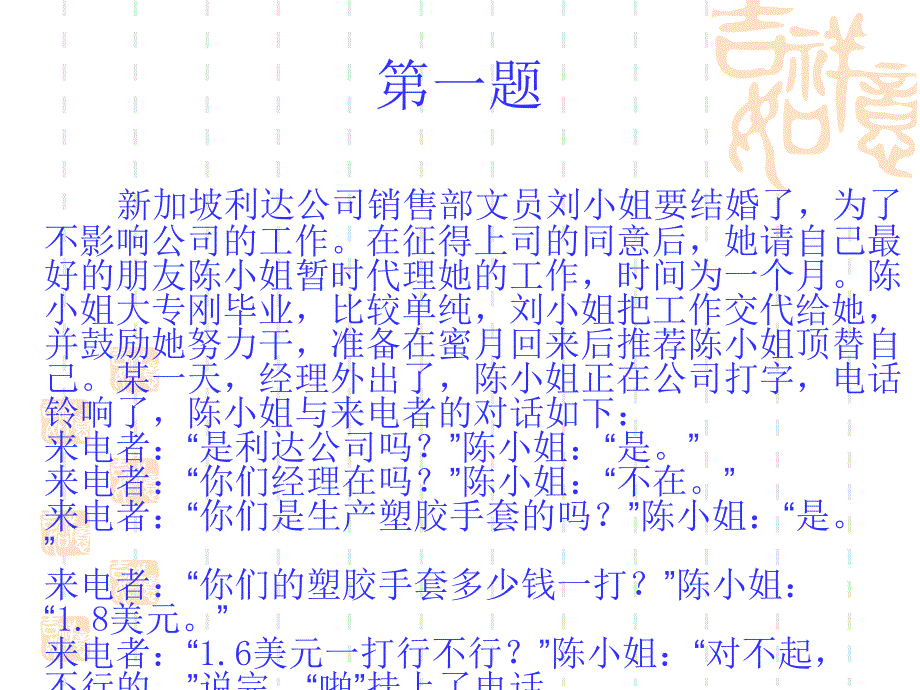 吉祥如意
第一题
新加坡利达公司销售部文员刘小姐要结婚了，为了
不影响公司的工作。在征得上司的同意后，她请自己最
好的朋友陈小姐暂时代理她的工作，时间为一个月。陈
小姐大专刚毕业，比较单纯，刘小姐把工作交代给她，
并鼓励她努力干，准备在蜜月回来后推荐陈小姐顶替自
己。某一天，经理外出了，陈小姐正在公司打字，电话
铃响了，陈小姐与来电者的对话如下：
来电者：“是利达公司吗？”陈小姐：“是。”
来电者：“你们经理在吗？”陈小姐：“不在。”
来电者：“你们是生产塑胶手套的吗？”陈小姐：“是。
”
来电者：“你们的塑胶手套多少钱一打？”陈小姐：
“1.8美元。”
来电者：“1.6美元一打行不行？”陈小姐：“对不起，
不行的。”说完，“啪”挂上了电话。